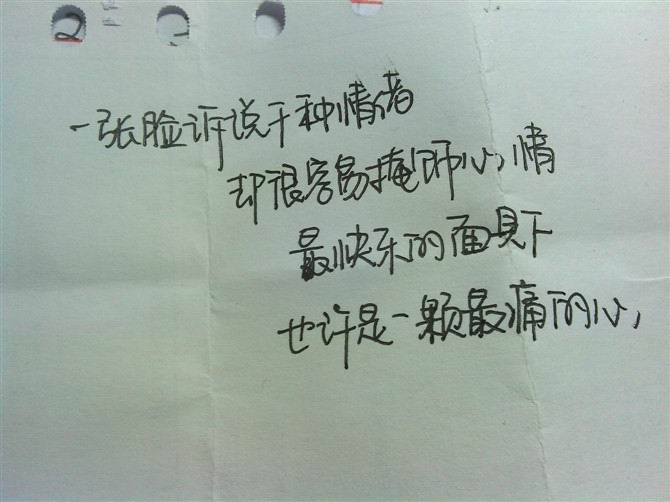 2
一张脸诉说千种情绪
却很容易掩饰心情
最快乐的面具下
也许是一颗最痛的心